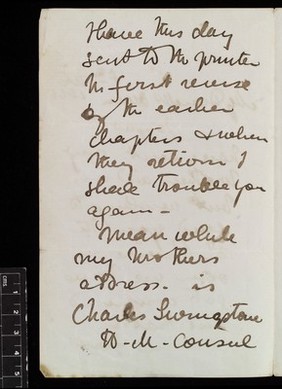 I have this day
sent to the printer
the first revise
of the earlier
chapters & when
they return I
shall trouble you
again -
Mean while
my Brothers
address. is
Charles Livingstone
H-M-Consul